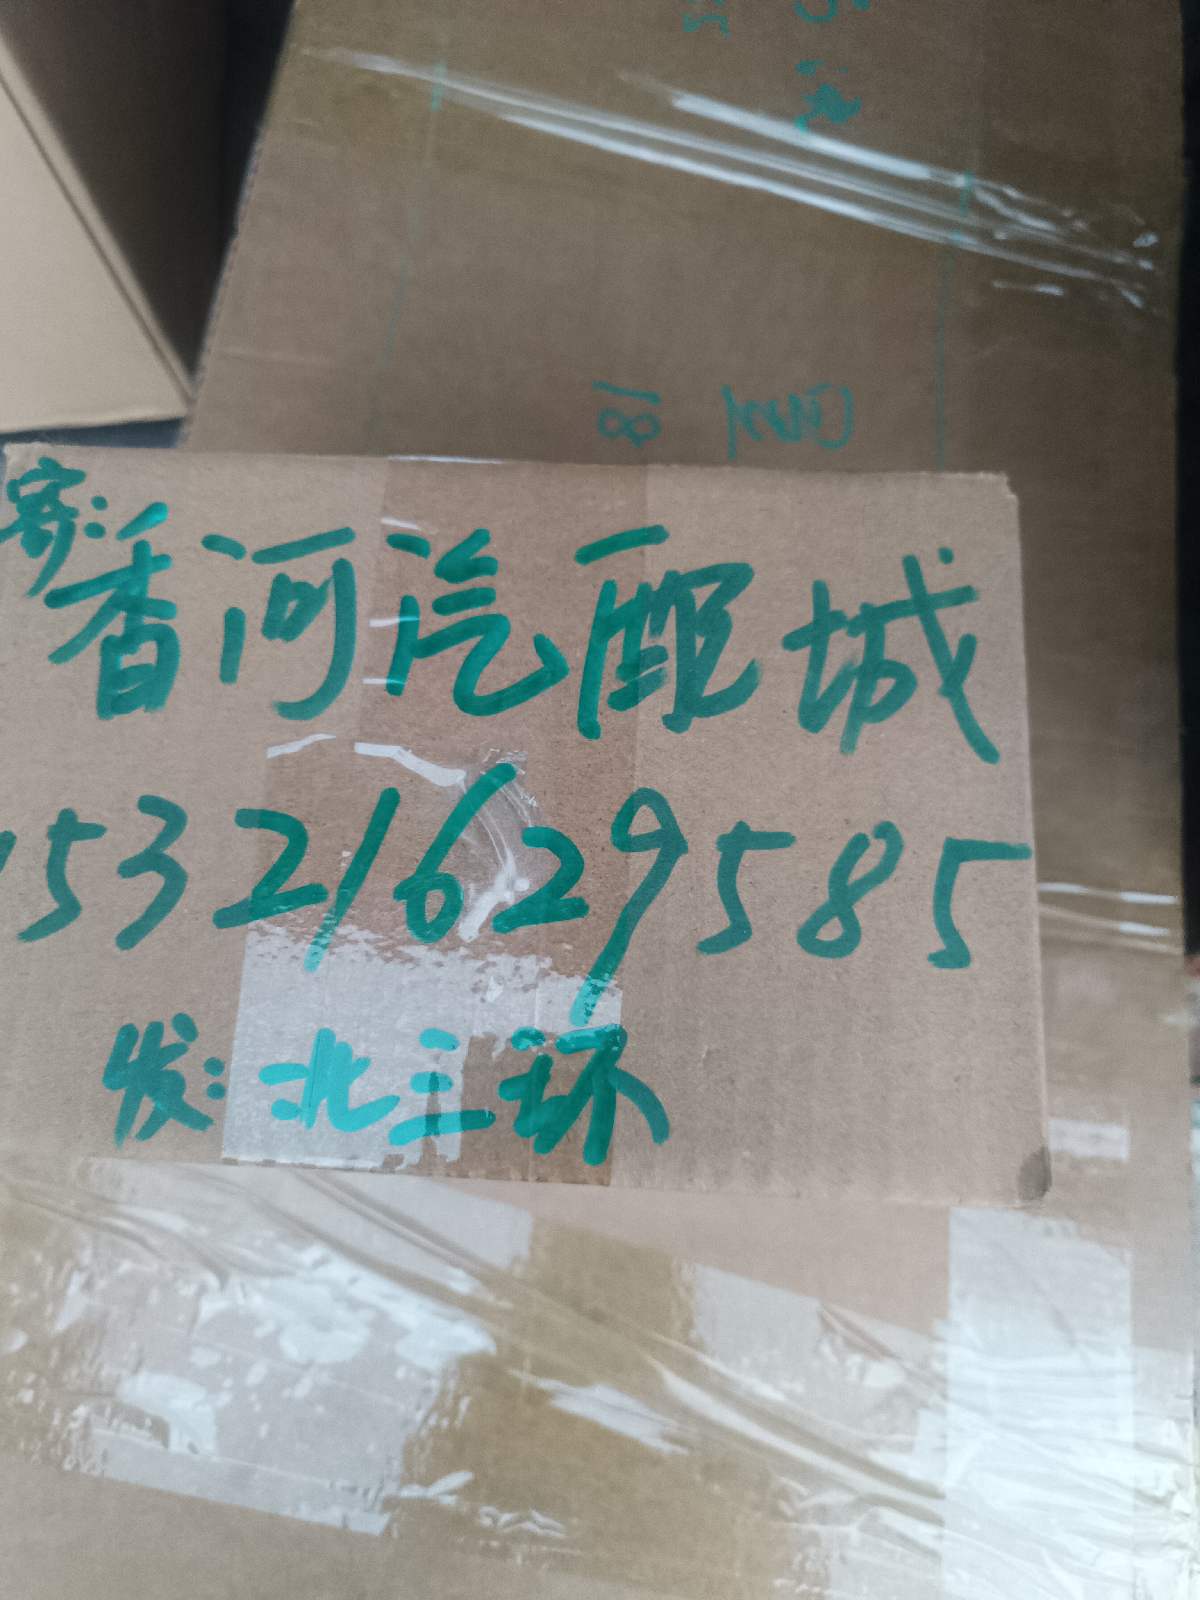 寄:香河汽配城
15321629585
发:北三环
18